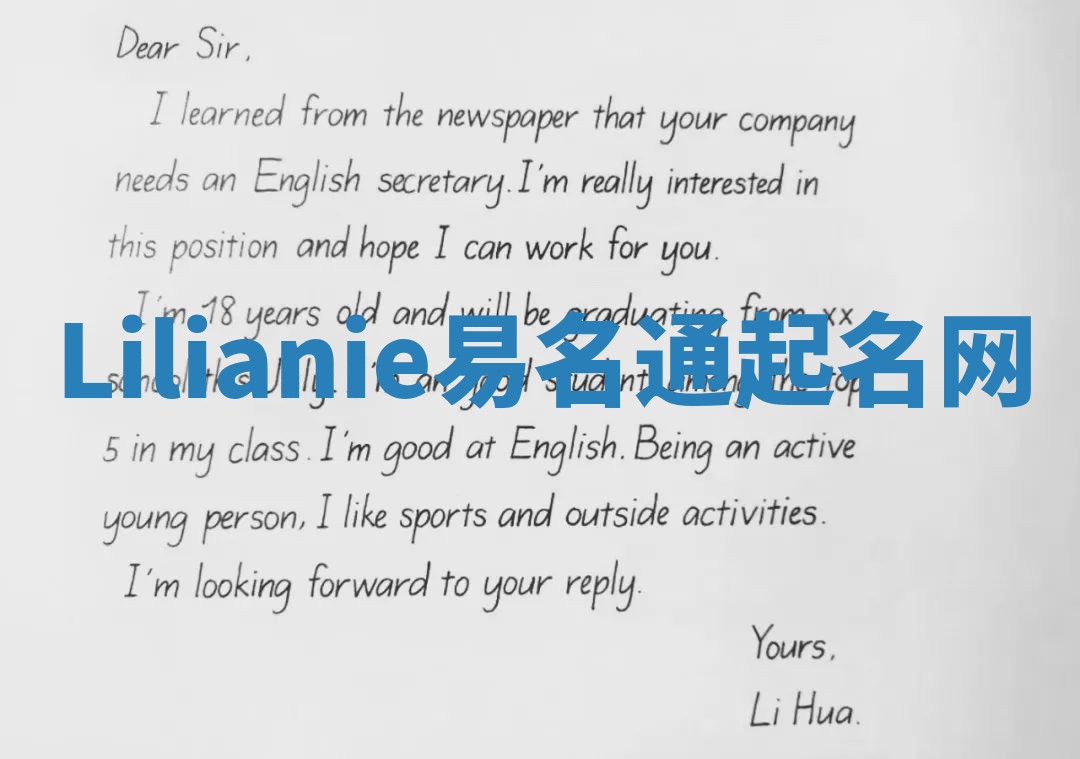 Dear Sir,
I learned from the newspaper that your company
needs an English secretary. I'm really interested in
this position and hope I can work for you.
I'm 18 years old and will be graduating from xx
Lilianie易名通起名网
school this July. I'm a good student among the top
5 in my class. I'm good at English. Being an active
young person, I like sports and outside activities.
I'm looking forward to your reply.
Yours,
Li Hua.